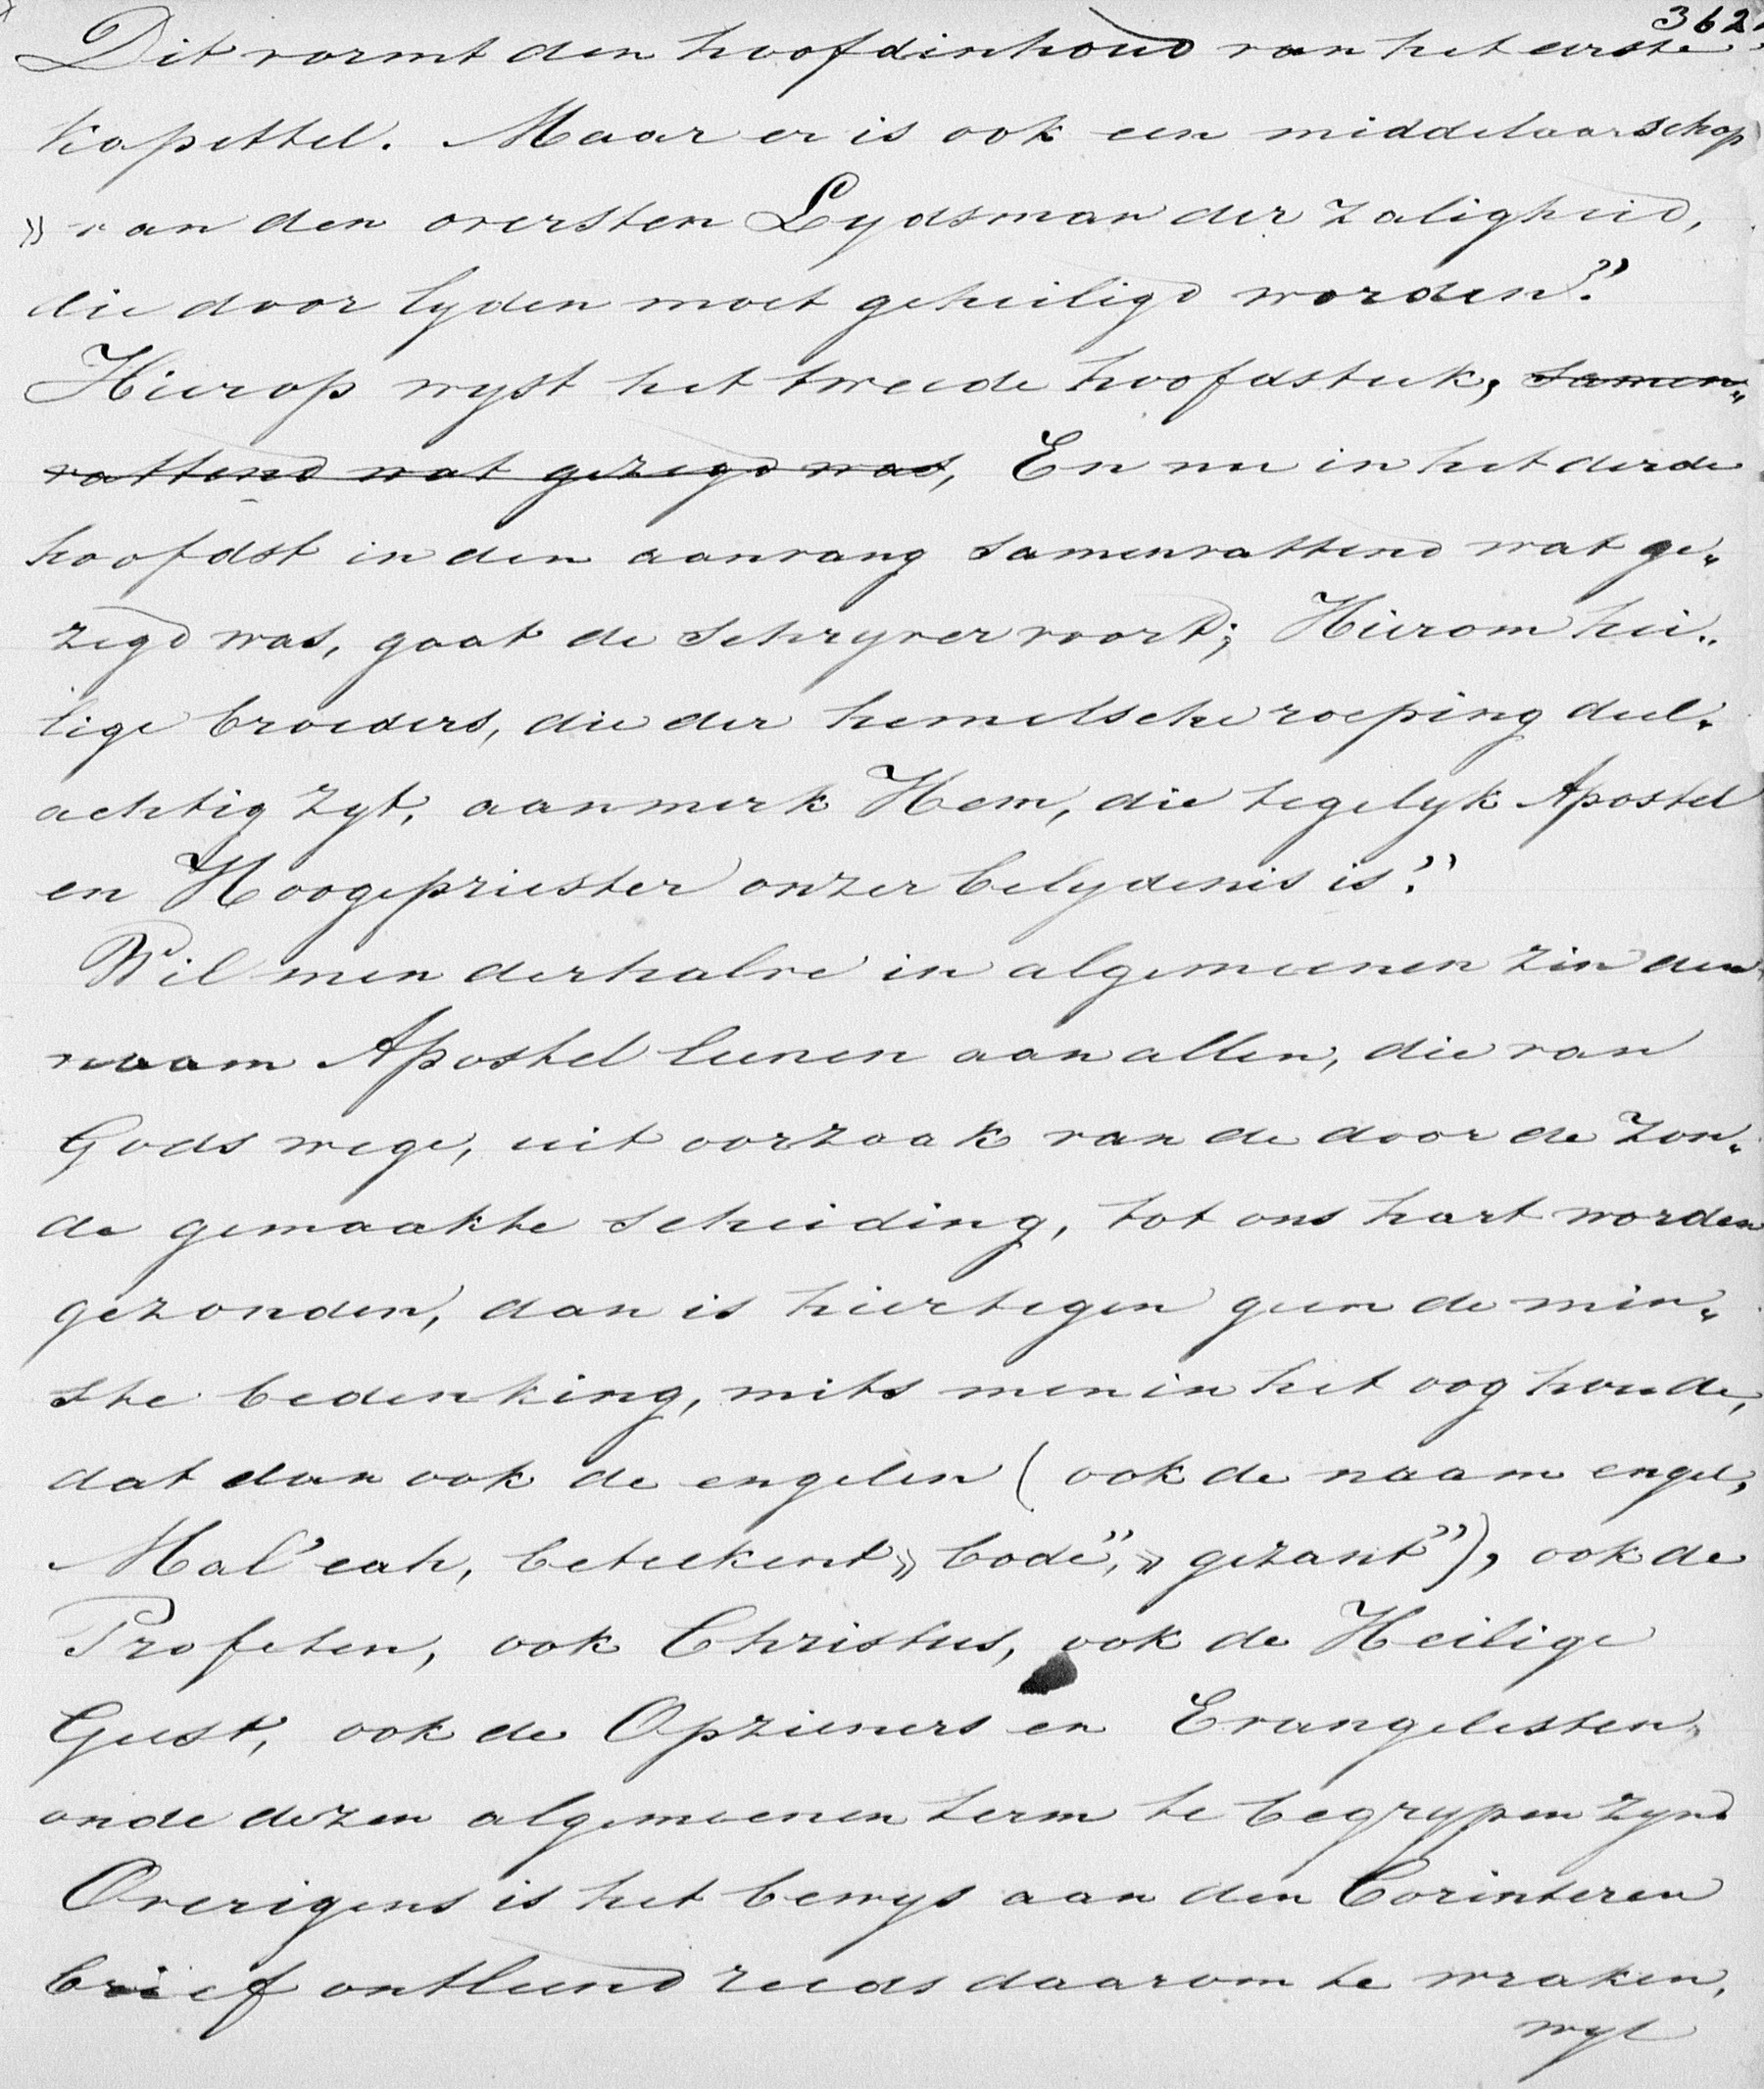 362.
Dit vormt den hoofdinhoud van het eerste
kapittel. Maar er is ook een middelaarschap
» van den oversten Leydsman der zaligheid,
die door lyden moet geheiligd worden."
Hierop wyst het tweede hoofdstuk, samen„
vattend wat gezegd was, En nu in het derde
hoofdst in den aanvang samenvattend wat ge„
zegd was, gaat de schryver voort; Hierom hei„
lige broeders, die der hemelsche roeping deel„
achtig zyt, aanmerk Hem, die tegelyk Apostel
en Hoogepriester onzer belydenis is."
Wil men derhalve in algemeenen zin den
naam Apostel leenen aan allen, die van
Gods wege, uit oorzaak van de door de zon„
de gemaakte scheiding, tot ons hart worden
gezonden, dan is hiertegen geen de min„
ste bedenking, mits men in het oog houde,
dat dan ook de engelen (ook de naam engel,
Mal'eah, beteekent » bode", » gezant"), ook de
Profeten, ook Christus, ook de Heilige
Geest, ook de Opzieners en Evangelisten,
onde dezen algemeenen term te begrypen zyn.
Overigens is het bewys aan den Corinteren
brief ontleend reeds daarom te wraken,
wyl